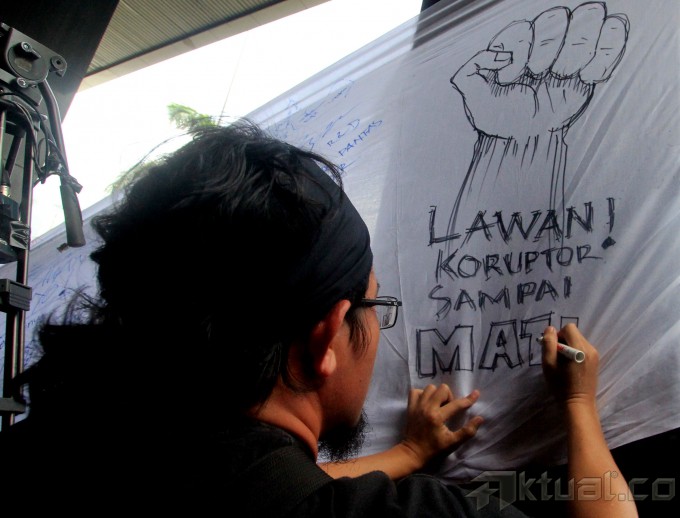 LAWAN!
KORUPTOR
SAMPAI
MATI
PANTAS
Aktual.co